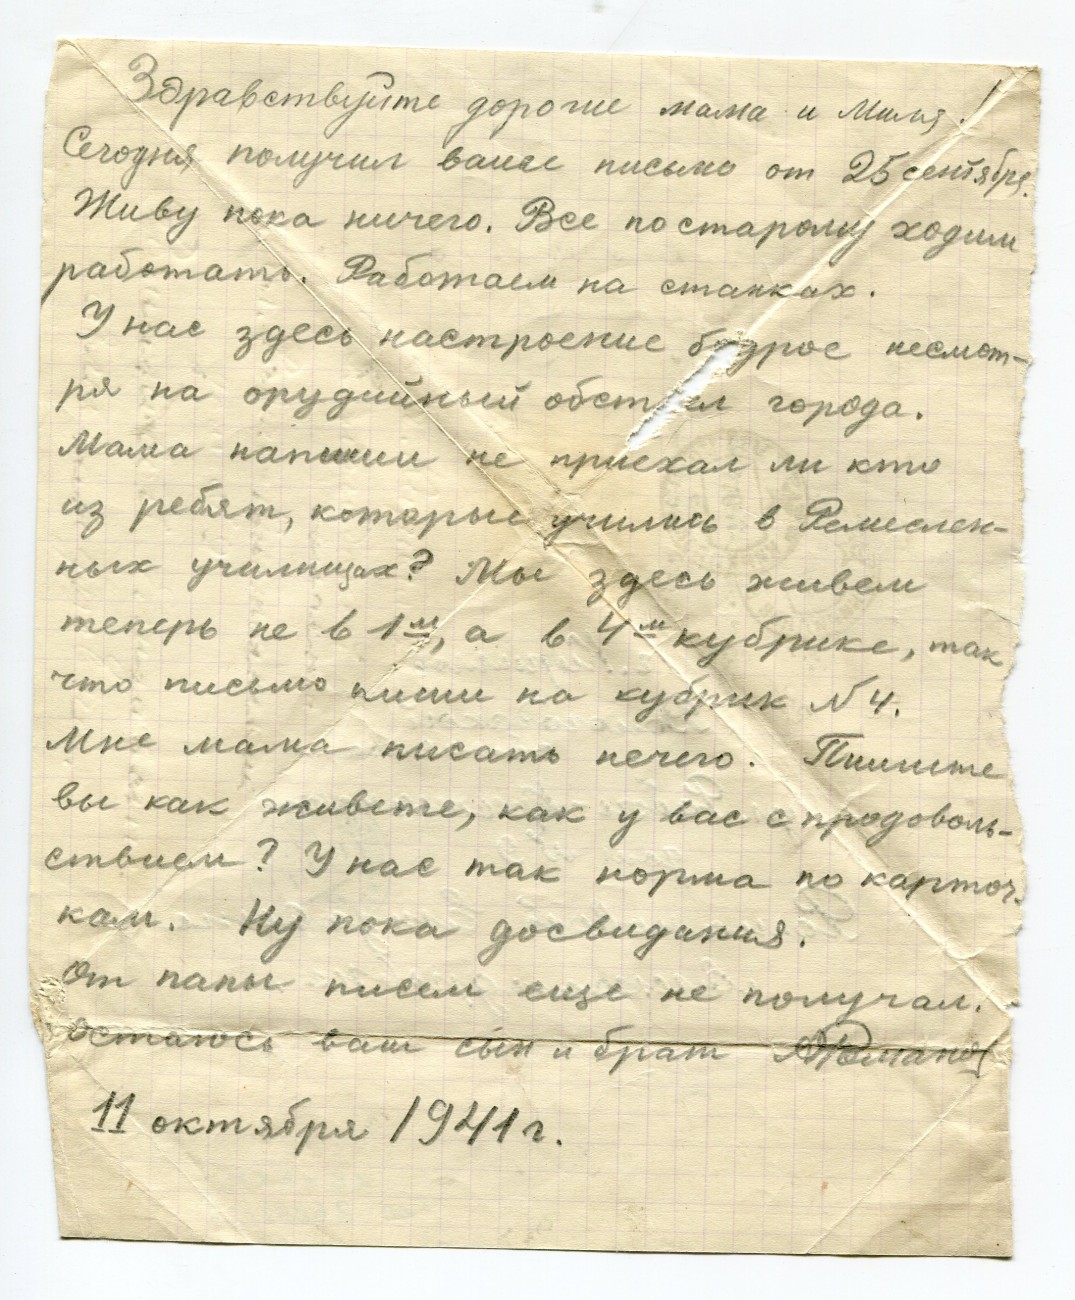 Здравствуйте дорогие мама и Миля!
Сегодня получил ваше письмо от 25 сентября.
Живу пока ничего. Все постарому ходим
работать. Работаем на станках.
У нас здесь настроение бодрое несмот-
ря на орудийный обстрел города.
Мама напиши не приехал ли кто
из ребят, которые учились в Ремеслен-
ных училищах? Мы здесь живем
теперь не в 1м, а в 4м кубрике, так
что письмо пиши на кубрик N 4.
Мне мама писать нечего. Пишите
вы как живете, как у вас с продоволь-
ствием? У нас так норма по карточ-
кам. Ну пока досвидания.
От папы писем еще не получал.
Остаюсь ваш сын и брат АРоманов
11 октября 1941 г.